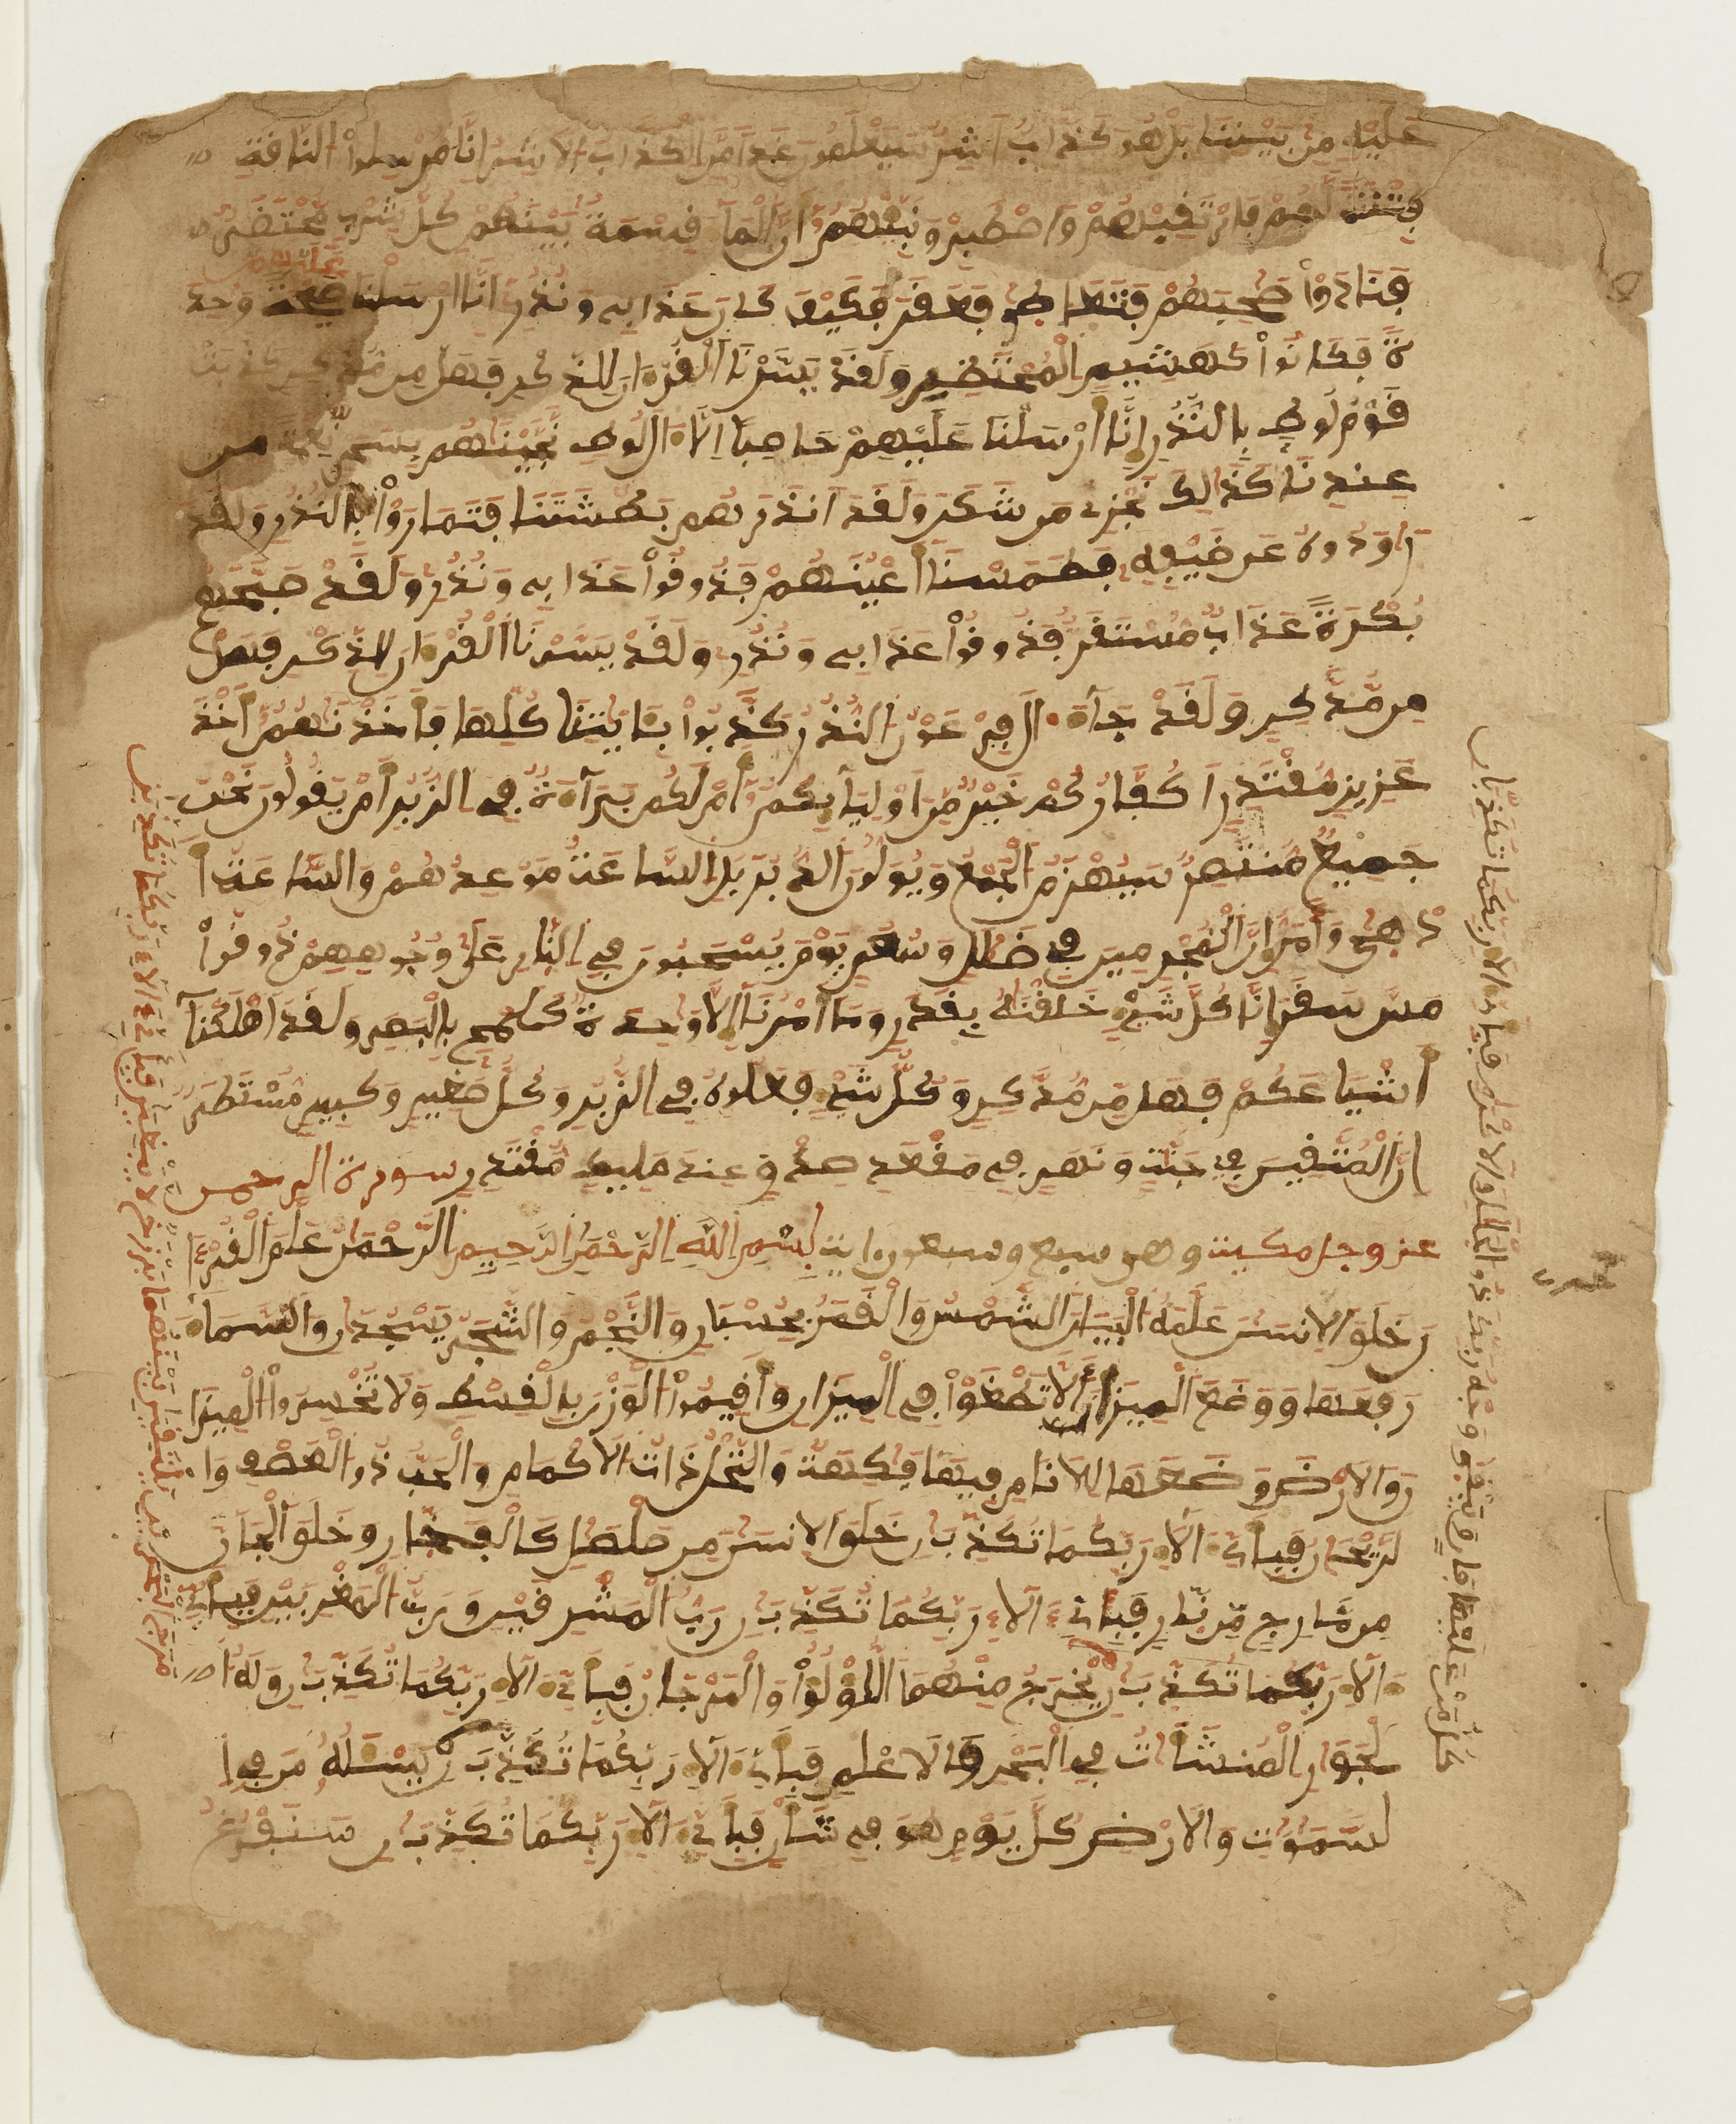 عَلَيْهِ مِنۢ بَيْنِنَا بَلْ هُوَ كَذَّابٌ اَشِرٌ سَيَعْلَمُونَ غَدًا مَّنِ الْكَذَّابُ الَاشِرُ إِنَّا مُرْسِلُوا۟ النَّاقَةِ
فِتْنَةً لَّهُمْ فَارْتَقِبْهُمْ وَاصْطَبِرْ وَنَبِّئْهُمُۥٓ أَنَّ الْمَآءَ قِسْمَةٌۢ بَيْنَهُمْ كُلُّ شِرْبٍ مُّحْتَضَرٌ
فَنَادَوْا۟ صَٰحِبَهُمْ فَتَعَاطَىٰ فَعَقَرَ فَكَيْفَ كَانَ عَذَابِے وَنُذُرِ إِنَّآ أَرْسَلْنَا عَلَيْهِمْ صَيْحَةً وَٰحِدَ
ةً فَكَانُوا۟ كَهَشِيمِ الْمُحْتَظِرِ وَلَقَدْ يَسَّرْنَا الْقُرْءَانَ لِلذِّكْرِ فَهَلْ مِن مُّدَّكِرٍ كَذَّبَتْ
قَوْمُ لُوطٍۭ بِالنُّذُرِ إِنَّآ أَرْسَلْنَا عَلَيْهِمْ حَاصِبًا اِلَّآ ءَالَ لُوطٍ نَّجَّيْنَٰهُم بِسَحَرٍ نِّعْمَةً مِّنْ
عِندِنَا كَذَٰلِكَ نَجْزِے مَن شَكَرَ وَلَقَدَ اَنذَرَهُم بَطْشَتَنَا فَتَمَارَوْا۟ بِالنُّذُرِ وَلَقَدْ
رَٰوَدُوهُ عَن ضَيْفِهِۦ فَطَمَسْنَآ أَعْيُنَهُمْ فَذُوقُوا۟ عَذَابِے وَنُذُرِ وَلَقَدْ صَبَّحَهُم
بُكْرَةً عَذَابٌ مُّسْتَقِرٌّ فَذُوقُوا۟ عَذَابِے وَنُذُرِ وَلَقَدْ يَسَّرْنَا الْقُرْءَانَ لِلذِّكْرِ فَهَلْ
مِن مُّدَّكِرٍ وَلَقَدْ جَآءَ ءَالَ فِرْعَوْنَ النُّذُرُ كَذَّبُوا۟ بِـَٔايَٰتِنَا كُلِّهَا فَأَخَذْنَٰهُمُۥٓ أَخْذَ
عَزِيزٍ مُّقْتَدِرٍ اَكُفَّارُكُمْ خَيْرٌ مِّنُ اوْلَٰٓئِكُمُۥٓ أَمْ لَكُم بَرَآءَةٌ فِے الزُّبُرِ أَمْ يَقُولُونَ نَحْنُ
جَمِيعٌ مُّنتَصِرٌ سَيُهْزَمُ الْجَمْعُ وَيُوَلُّونَ الدُّبُرَ بَلِ السَّاعَةُ مَوْعِدُهُمْ وَالسَّاعَةُ أَ
دْهَىٰ وَأَمَرُّ إِنَّ الْمُجْرِمِينَ فِے ضَلَٰلٍ وَسُعُرٍ يَوْمَ يُسْحَبُونَ فِے النَّارِ عَلَىٰ وُجُوهِهِمْ ذُوقُوا۟
مَسَّ سَقَرَ إِنَّا كُلَّ شَےْءٍ خَلَقْنَٰهُ بِقَدَرٍ وَمَآ أَمْرُنَآ إِلَّا وَٰحِدَةٌ كَلَمْحٍۭ بِالْبَصَرِ وَلَقَدَ اَهْلَكْنَآ
أَشْيَاعَكُمْ فَهَلْ مِن مُّدَّكِرٍ وَكُلُّ شَےْءٍ فَعَلُوهُ فِے الزُّبُرِ وَكُلُّ صَغِيرٍ وَكَبِيرٍ مُّسْتَطَرٌ
اِنَّ الْمُتَّقِينَ فِے جَنَّٰتٍ وَنَهَرٍ فِے مَقْعَدِ صِدْقٍ عِندَ مَلِيكٍ مُّقْتَدِرٍ سورة الرحمن
عز وجل مكية وهى سبع وسبعون اية بِسْمِ اللَّهِ الرَّحْمَٰنِ الرَّحِيمِ الرَّحْمَٰنُ عَلَّمَ الْقُرْءَا
نَ خَلَقَ الِانسَٰنَ عَلَّمَهُ الْبَيَانَ الشَّمْسُ وَالْقَمَرُ بِحُسْبَانٍ وَالنَّجْمُ وَالشَّجَرُ يَسْجُدَانِ وَالسَّمَآءَ
رَفَعَهَا وَوَضَعَ الْمِيزَانَ أَلَّا تَطْغَوْا۟ فِے الْمِيزَانِ وَأَقِيمُوا۟ الْوَزْنَ بِالْقِسْطِ وَلَا تُخْسِرُوا۟ الْمِيزَا
نَ وَالَارْضَ وَضَعَهَا لِلَانَامِ فِيهَا فَٰكِهَةٌ وَالنَّخْلُ ذَاتُ الَاكْمَامِ وَالْحَبُّ ذُو الْعَصْفِ وَا
لرَّيْحَانُ فَبِأَىِّ ءَالَآءِ رَبِّكُمَا تُكَذِّبَٰنِ خَلَقَ الِانسَٰنَ مِن صَلْصَٰلٍ كَالْفَخَّارِ وَخَلَقَ الْجَآنَّ
مِن مَّارِجٍ مِّن نَّارٍ فَبِأَىِّ ءَالَآءِ رَبِّكُمَا تُكَذِّبَٰنِ رَبُّ الْمَشْرِقَيْنِ وَرَبُّ الْمَغْرِبَيْنِ فَبِأَىِّ
ءَالَآءِ رَبِّكُمَا تُكَذِّبَٰنِ يُخْرَجُ مِنْهُمَا اللُّؤْلُؤُا۟ وَالْمَرْجَانُ فَبِأَىِّ ءَالَآءِ رَبِّكُمَا تُكَذِّبَٰنِ وَلَهُ ا
لْجَوَارِ الْمُنشَـَٔاتُ فِے الْبَحْرِ كَالَاعْلَٰمِ فَبِأَىِّ ءَالَآءِ رَبِّكُمَا تُكَذِّبَٰنِ يَسْـَٔلُهُۥ مَن فِے ا
لسَّمَٰوَٰتِ وَالَارْضِ كُلَّ يَوْمٍ هُوَ فِے شَأْنٍ فَبِأَىِّ ءَالَآءِ رَبِّكُمَا تُكَذِّبَٰنِ سَنَفْرُغُ
مَرَجَ الْبَحْرَيْنِ يَلْتَقِيَٰنِ بَيْنَهُمَا بَرْزَخٌ لَّا يَبْغِيَٰنِ فَبِأَىِّ ءَالَآءِ رَبِّكُمَا تُكَذِّبَٰنِ
كُلُّ مَنْ عَلَيْهَا فَانٍ وَيَبْقَىٰ وَجْهُ رَبِّكَ ذُو الْجَلَٰلِ وَالِاكْرَامِ فَبِأَىِّ ءَالَآءِ رَبِّكُمَا تُكَذِّبَٰنِ